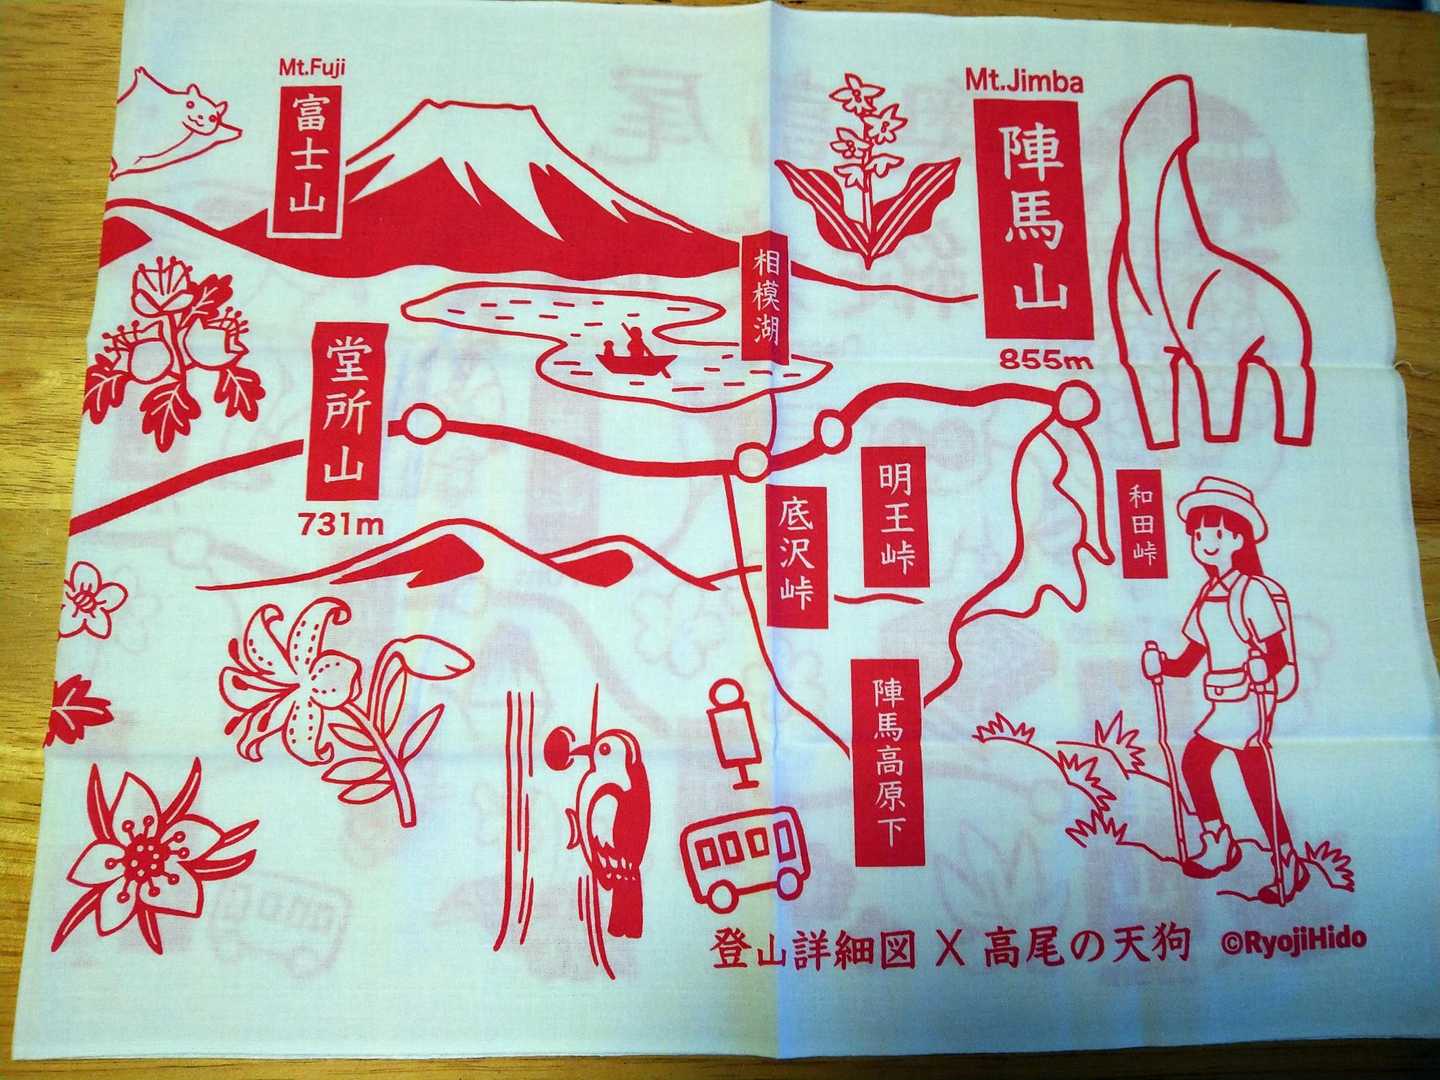 Mt.Fuji
富士山
Mt.Jimba
陣馬山
855m
相模湖
堂所山
731m
底沢峠
明王峠
和田峠
陣馬高原下
登山詳細図 X 高尾の天狗 ©RyojiHido